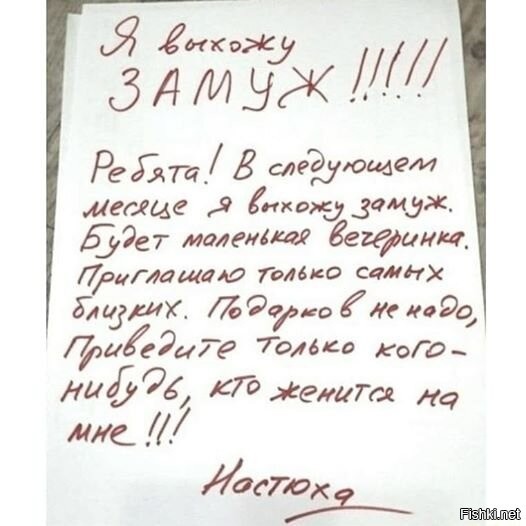 Я выхожу
ЗАМУЖ !!!!!!
Ребята! В следующем
месяце я выхожу замуж.
Будет маленькая вечеринка.
Приглашаю только самых
близких. Подарков не надо,
Приведите только кого-
нибудь, кто женится на
мне!!!
Настюха
Fishki.net